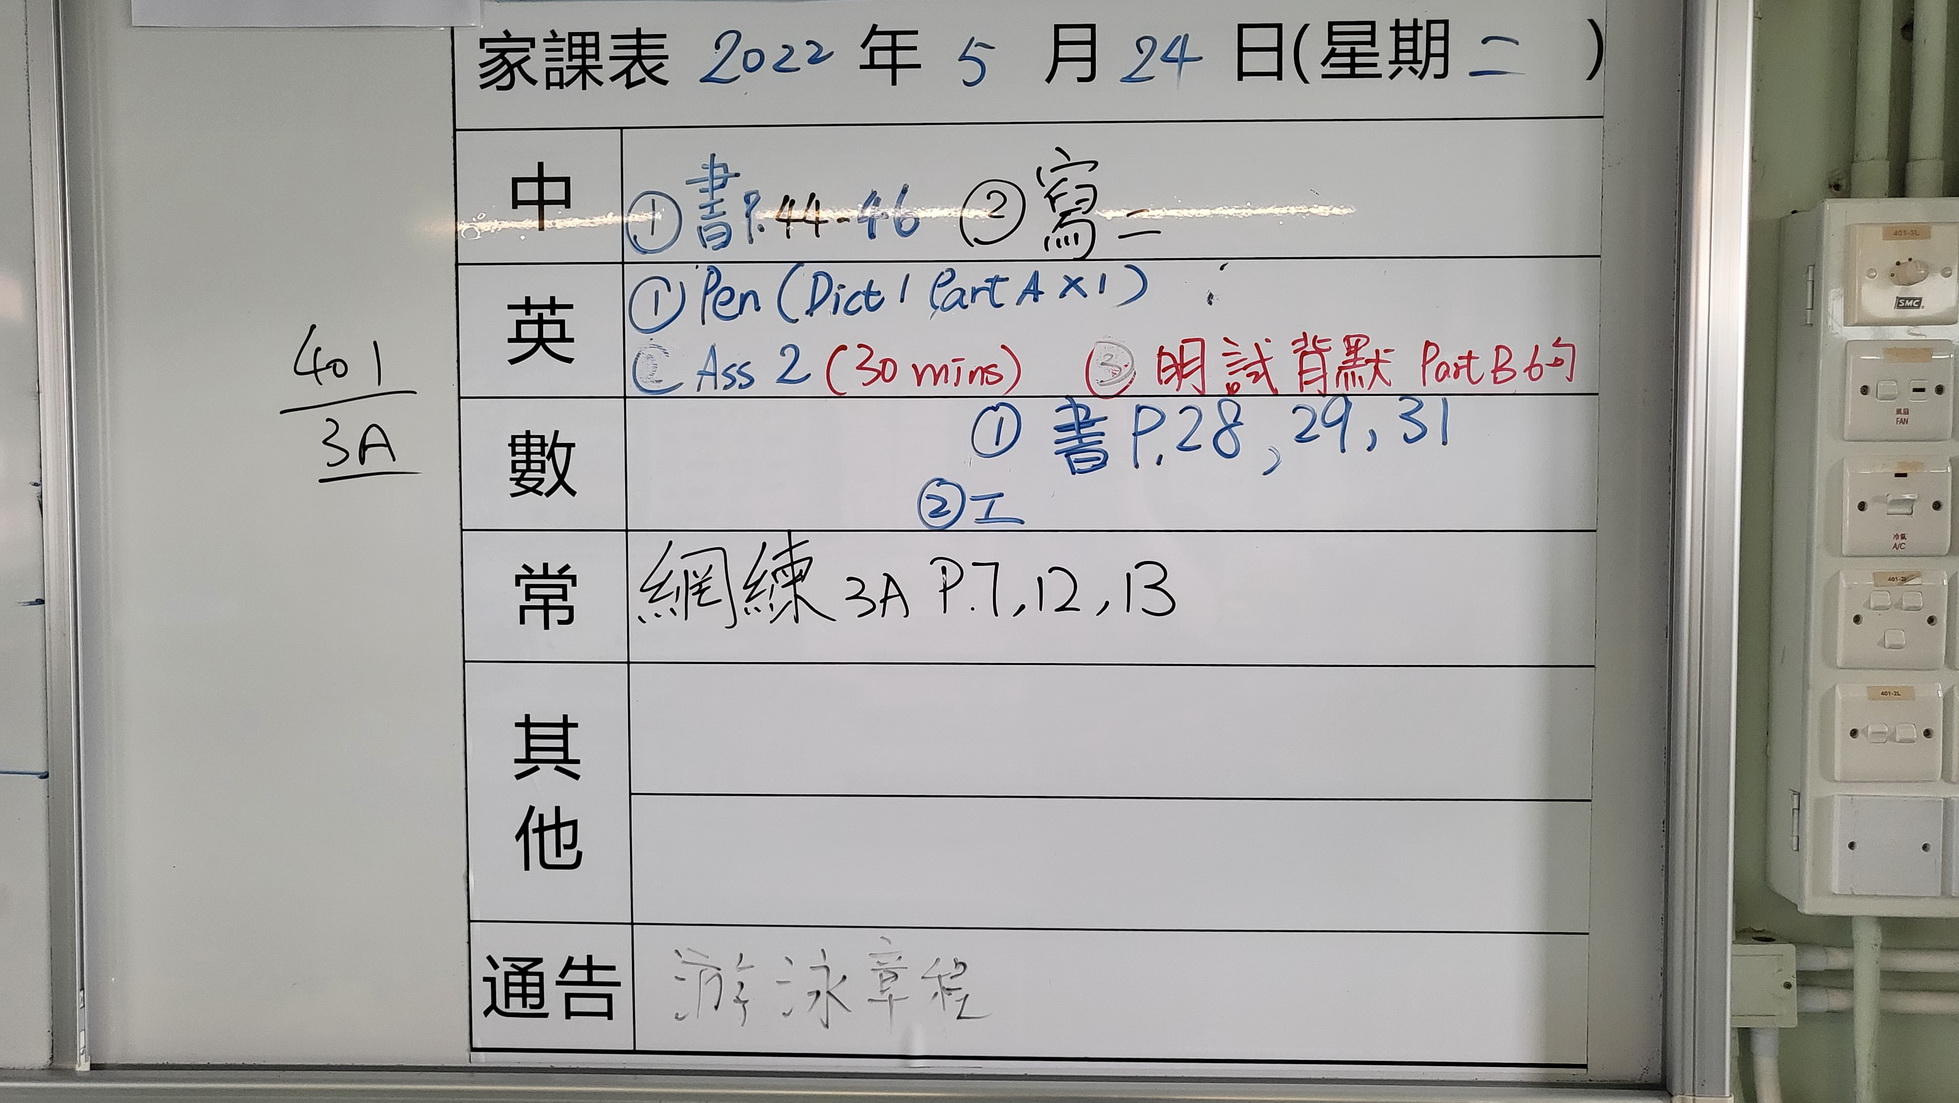 家課表 2022 年 5 月 24 日(星期 二 )
中
①書P.44-46 ②寫二
英
①Pen (Dict 1 Part A x1)
② Ass 2 (30 mins) ③ 明試背默 Part B 6句
數
① 書 P.28, 29, 31
②工
常
網練 3A P.7, 12, 13
其他
通告
游泳章程
401
3A
401-3L
SMC
風扇
FAN
冷氣
A/C
401-2L